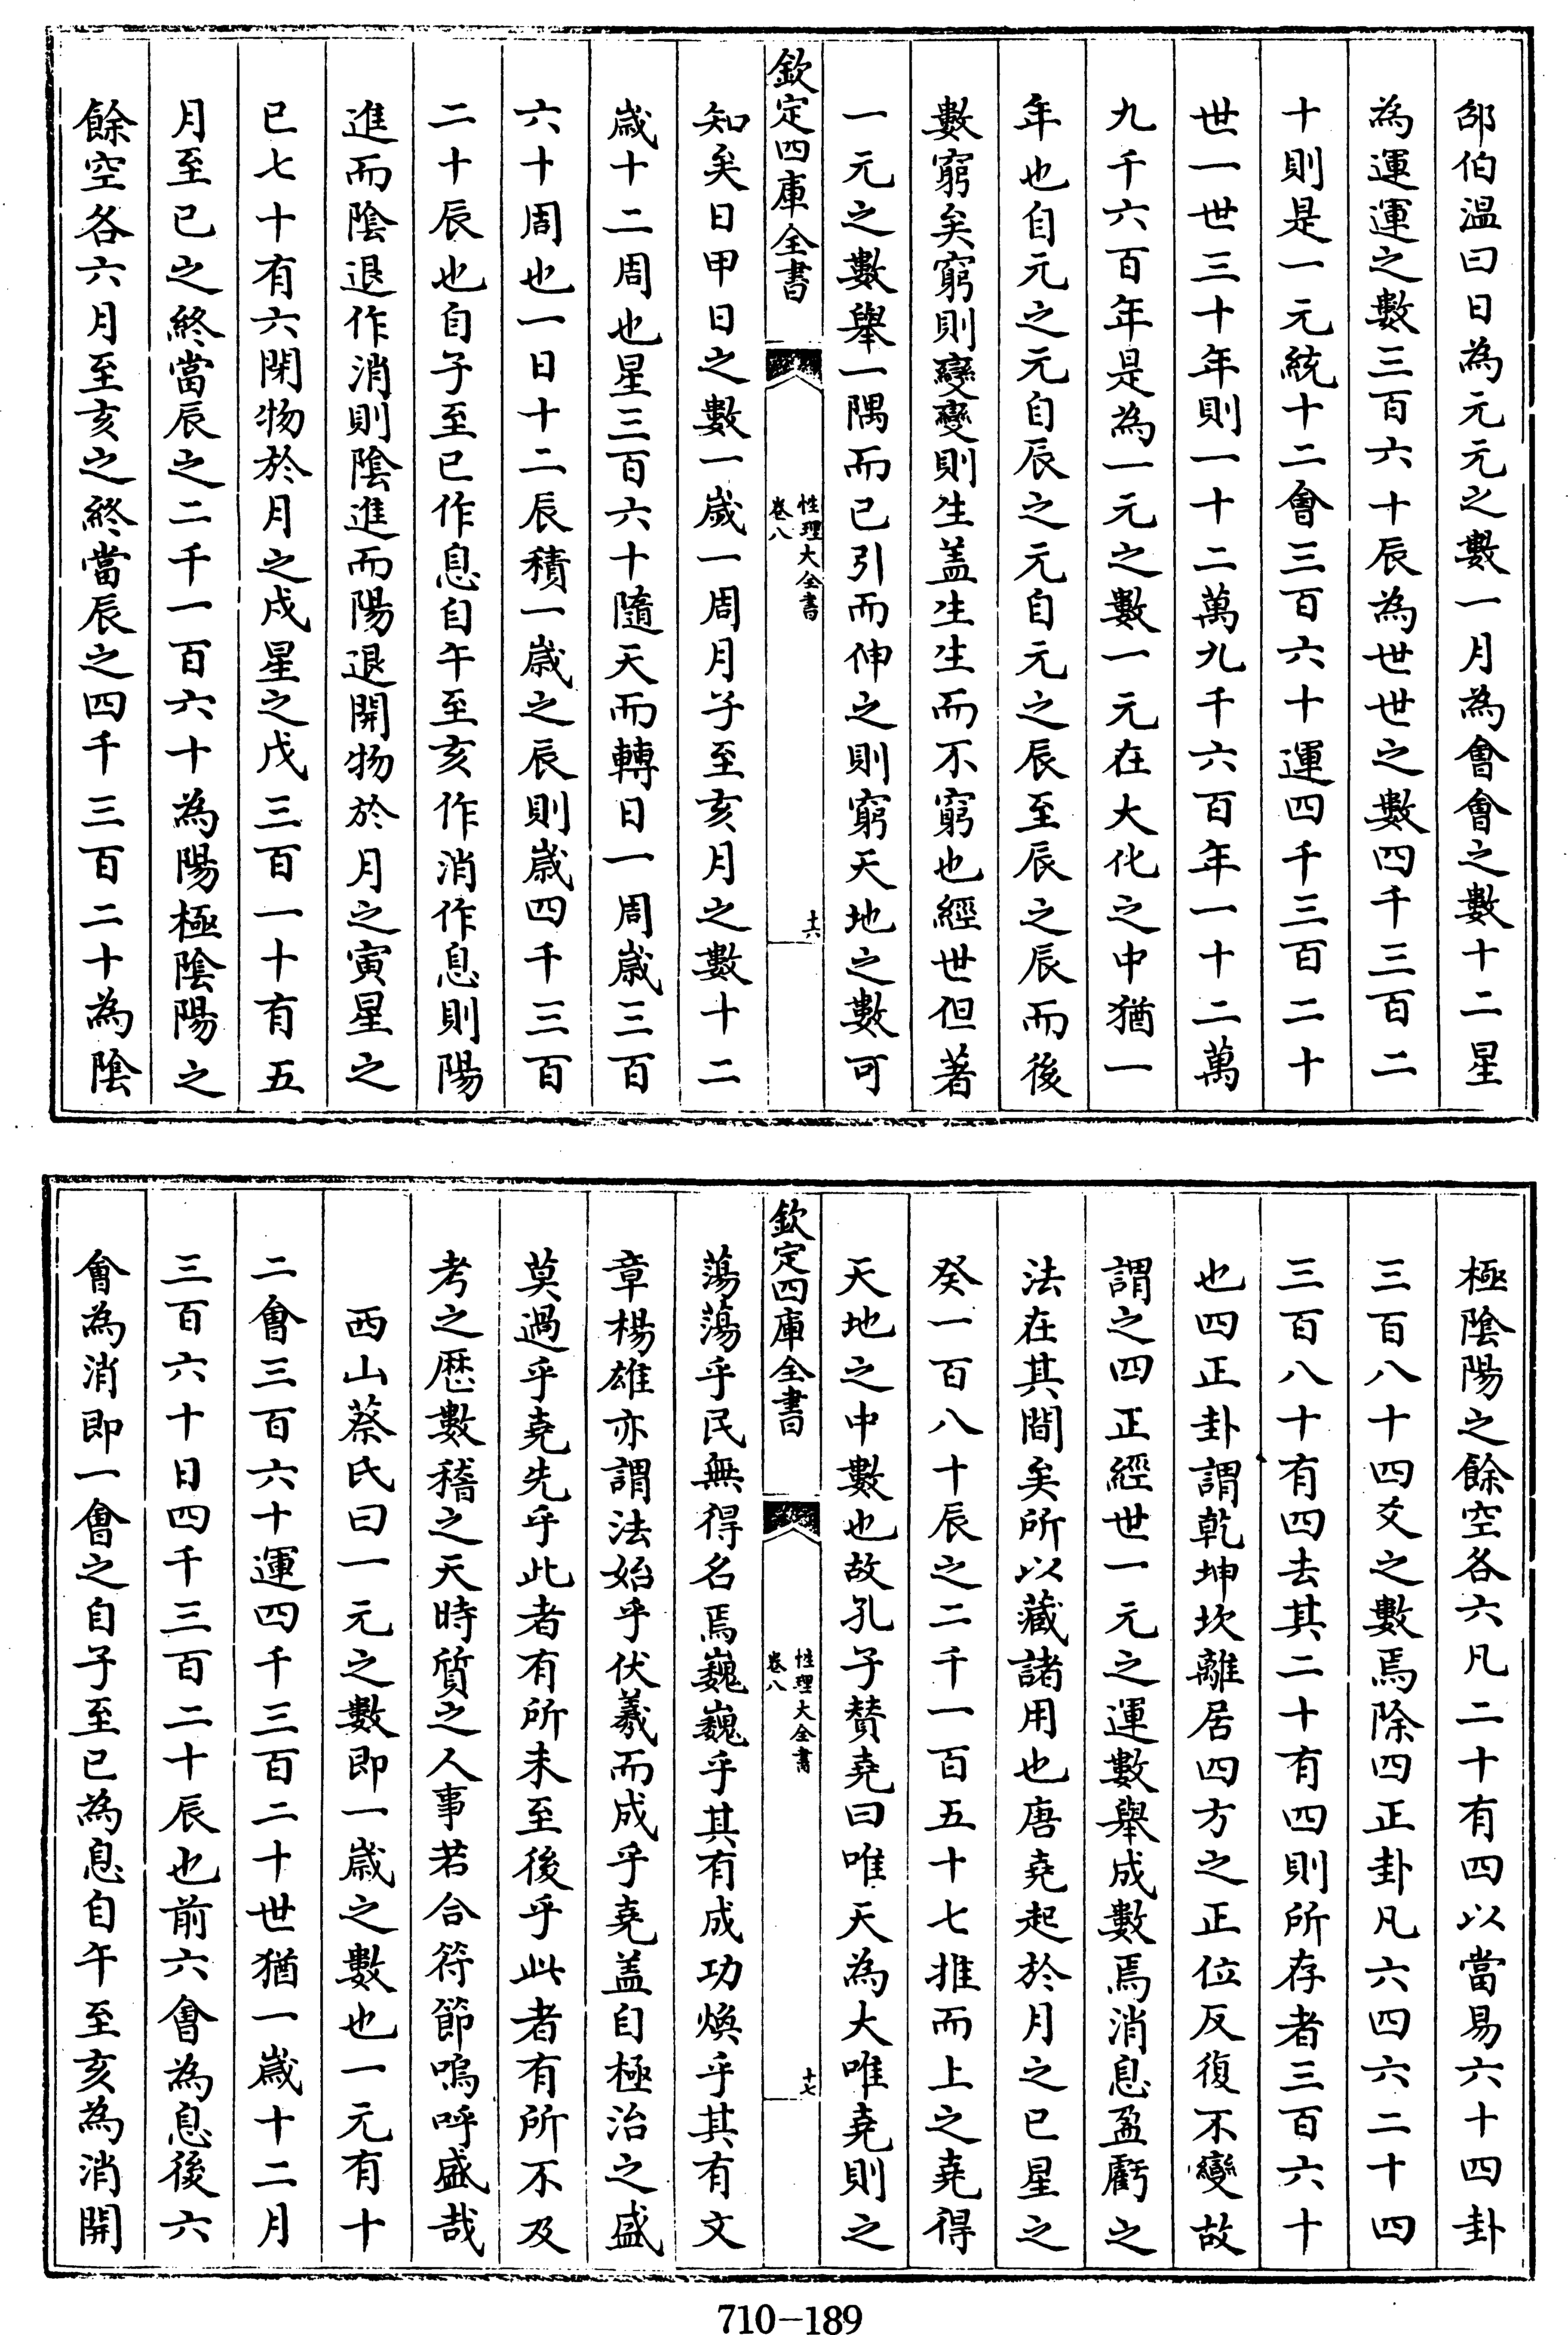 邵伯温曰日為元元之數一月為會會之數十二星
為運運之數三百六十辰為世世之數四千三百二
十則是一元統十二會三百六十運四千三百二十
世一世三十年則一十二萬九千六百年一十二萬
九千六百年是為一元之數一元在大化之中猶一
年也自元之元自辰之元自元之辰至辰之辰而後
數窮矣窮則變變則生蓋生生而不窮也經世但著
一元之數舉一隅而已引而伸之則窮天地之數可
欽定四庫全書
性理大全書
卷八
十六
知矣日甲日之數一歲一周月子至亥月之數十二
歲十二周也星三百六十隨天而轉日一周歲三百
六十周也一日十二辰積一歲之辰則歲四千三百
二十辰也自子至巳作息自午至亥作消作息則陽
進而陰退作消則陰進而陽退開物於月之寅星之
巳七十有六閉物於月之戌星之戊三百一十有五
月至巳之終當辰之二千一百六十為陽極陰陽之
餘空各六月至亥之終當辰之四千三百二十為陰
極陰陽之餘空各六凡二十有四以當易六十四卦
三百八十四爻之數焉除四正卦凡六四六二十四
三百八十有四去其二十有四則所存者三百六十
也四正卦謂乾坤坎離居四方之正位反復不變故
謂之四正經世一元之運數舉成數焉消息盈虧之
法在其間矣所以藏諸用也唐堯起於月之巳星之
癸一百八十辰之二千一百五十七推而上之堯得
天地之中數也故孔子賛堯曰唯天為大唯堯則之
欽定四庫全書
性理大全書
卷八
十七
蕩蕩乎民無得名焉巍巍乎其有成功煥乎其有文
章楊雄亦謂法始乎伏羲而成乎堯蓋自極治之盛
莫過乎堯先乎此者有所未至後乎此者有所不及
考之歴數稽之天時質之人事若合符節嗚呼盛哉
西山蔡氏曰一元之數即一歲之數也一元有十
二會三百六十運四千三百二十世猶一歲十二月
三百六十日四千三百二十辰也前六會為息後六
會為消即一會之自子至巳為息自午至亥為消開
710-189